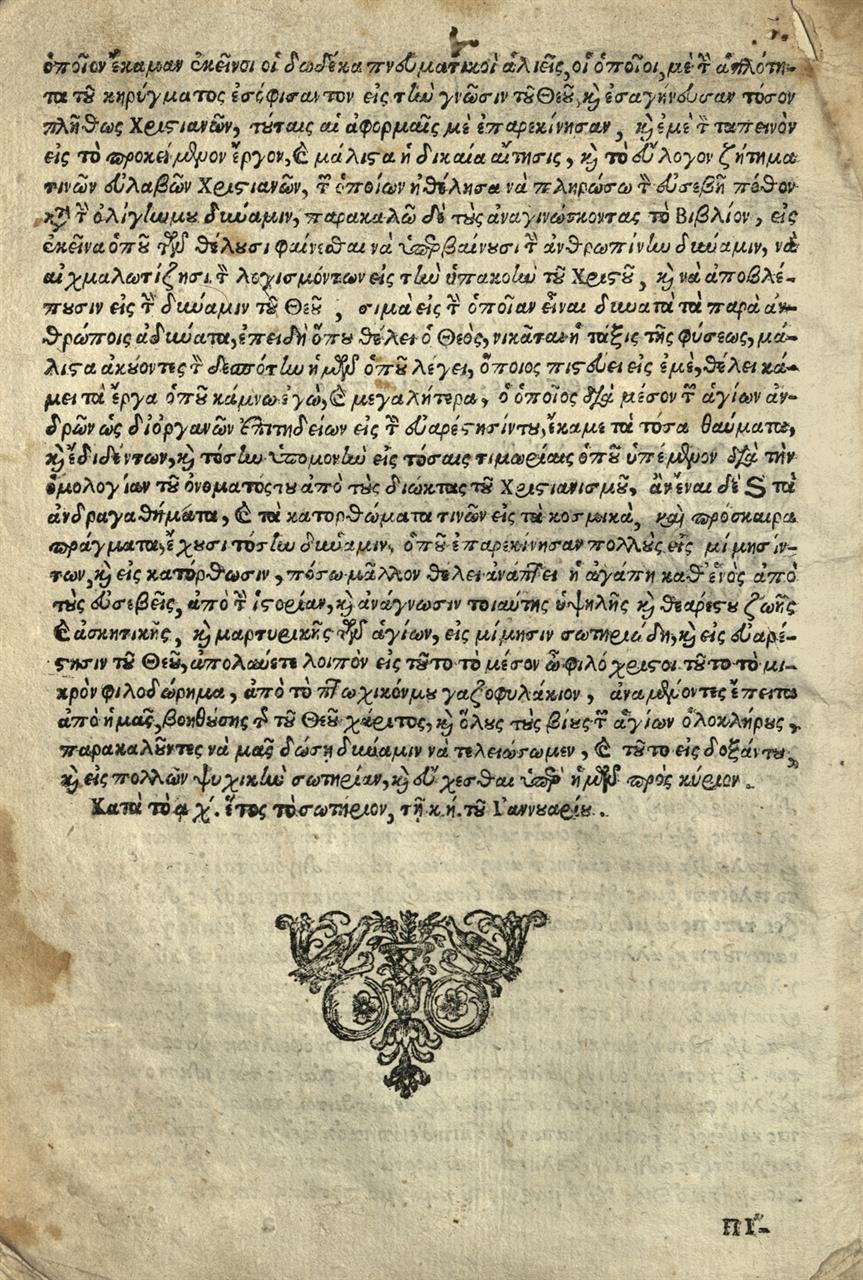 ὁποῖον ἔκαμαν ἐκεῖνοι οἱ δωδέκα πνευματικοὶ ἁλιεῖς, οἱ ὁποῖοι, μὲ τὴν ἁπλότη-
τα τοῦ κηρύγματος ἐσόφισαν τον εἰς τὴν γνῶσιν τοῦ Θεοῦ, καὶ ἐσαγήνευσαν τόσον
πλῆθως Χριστιανῶν, τούταις αἱ ἀφορμαῖς μὲ ἐπαρεκίνησαν, καὶ ἐμὲ τὸν ταπεινὸν
εἰς τὸ προκείμενον ἔργον, καὶ μάλιστα ἡ δικαία αἴτησις, καὶ τὸ εὔλογον ζήτημα
τινῶν εὐλαβῶν Χριστιανῶν, τῶν ὁποίων ἠθέλησα νὰ πληρώσω τὸν εὐσεβῆ πόθον
κατὰ τὴν ὀλίγην μου δύναμιν, παρακαλῶ δὲ τοὺς ἀναγινώσκοντας τὸ Βιβλίον, εἰς
ἐκεῖνα ὁποῦ τῶν θέλουσι φαίνεσθαι νὰ ὑπερβαίνουσι τὴν ἀνθρωπίνην δύναμιν, νὰ
αἰχμαλωτίζησι τὸν λογισμόντων εἰς τὴν ὑπακοὴν τοῦ Χριστοῦ, καὶ νὰ ἀποβλέ-
πουσιν εἰς τὴν δύναμιν τοῦ Θεοῦ, σιμὰ εἰς τὴν ὁποίαν εἶναι δυνατὰ τὰ παρὰ ἀν-
θρώποις ἀδύνατα, ἐπειδὴ ὅπου θέλει ὁ Θεὸς, νικᾶται ἡ τάξις τῆς φύσεως, μά-
λιστα ἀκούοντες τὸν δεσπότην ἡμῶν ὁποῦ λέγει, ὅποιος πιστεύει εἰς ἐμὲ, θέλει κά-
μει τὰ ἔργα ὁποῦ κάμνω ἐγὼ, καὶ μεγαλήτερα, ὁ ὁποῖος διὰ μέσον τῶν ἁγίων ἀν-
δρῶν ὡς διὀργανῶν ἐπιτηδείων εἰς τὴν εὐαρέστησίντου, ἔκαμε τὰ τόσα θαύματα,
καὶ ἐδιδέντων, καὶ τόσην ὑπομονὴν εἰς τόσαις τιμωρίαις ὁποῦ ὑπέμενον διὰ τὴν
ὁμολογίαν τοῦ ὀνοματοςτου ἀπὸ τοὺς διώκτας τοῦ Χριστιανισμοῦ, ἂν ἔναι δὲ καὶ τὰ
ἀνδραγαθήματα, καὶ τὰ κατορθώματα τινῶν εἰς τὰ κοσμικὰ, καὶ πρόσκαιρα
πράγματα, ἔχουσι τόσην δύναμιν, ὁποῦ ἐπαρεκίνησαν πολλοὺς εἰς μίμησίν-
των, καὶ εἰς κατόρθωσιν, πόσω μᾶλλον θέλει ἀνάπτει ἡ ἀγάπη καθ' ἑνὸς ἀπὸ
τοὺς εὐσεβεῖς, ἀπὸ τὴν ἱστορίαν, καὶ ἀνάγνωσιν τοιαύτης ὑψηλῆς καὶ θεαρέστου ζωῆς
καὶ ἀσκητικῆς, καὶ μαρτυρικῆς τῶν ἁγίων, εἰς μίμησιν σωτηριώδη, καὶ εἰς εὐαρέ-
στησιν τοῦ Θεοῦ, ἀπολαύετε λοιπὸν εἰς τοῦτο τὸ μέσον ὦ φιλόχριστοι τοῦτο τὸ μι-
κρὸν φιλοδώρημα, ἀπὸ τὸ πτωχικόνμου γαζοφυλάκιον, ἀναμένοντες ἔπειτα
ἀπὸ ἡμᾶς, βοηθούσης τῆς τοῦ Θεοῦ χάριτος, καὶ ὅλους τοὺς βίους τῶν ἁγίων ὁλοκλήρους,
παρακαλοῦντες νὰ μᾶς δώσῃ δύναμιν νὰ τελειώσωμεν, καὶ τοῦτο εἰς δοξάντου,
καὶ εἰς πολλῶν ψυχικὴν σωτηρίαν, καὶ εὔχεσθαι ὑπὲρ ἡμῶν πρὸς κύριον.
Κατὰ τὸ αχ΄. ἔτος τὸ σωτήριον, τῇ κ.ή. τοῦ Ἰαννουαρίου.
ΠΙ-